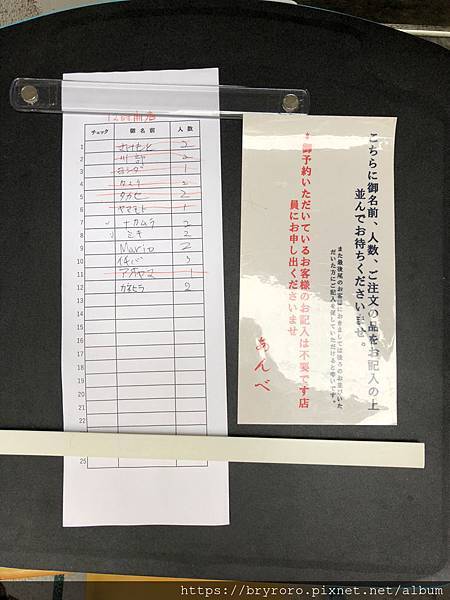 12時開店
チェック 御名前 人数
1 2
2 川部 2
3 ヨシダ 1
4 2
5 タカセ 2
6 ヤマモト 1
7 ナカムラ 2
8 ミキ 2
9 Mario 2
10 イチバ 3
11 アオヤマ 1
12 カネヒラ 2
13
14
15
16
17
18
19
20
21
22
23
25
こちらに御名前、人数、ご注文の品をお記入の上
並んでお待ちくださいませ。
また最後尾のお客様におきましては後ろのお並びいた
だいた方にご記入を促していただけると幸いです。
*御予約いただいているお客様のお記入は不要です店
員にお申し出くださいませ
あんべ
https://bryroro.pixnet.net/album